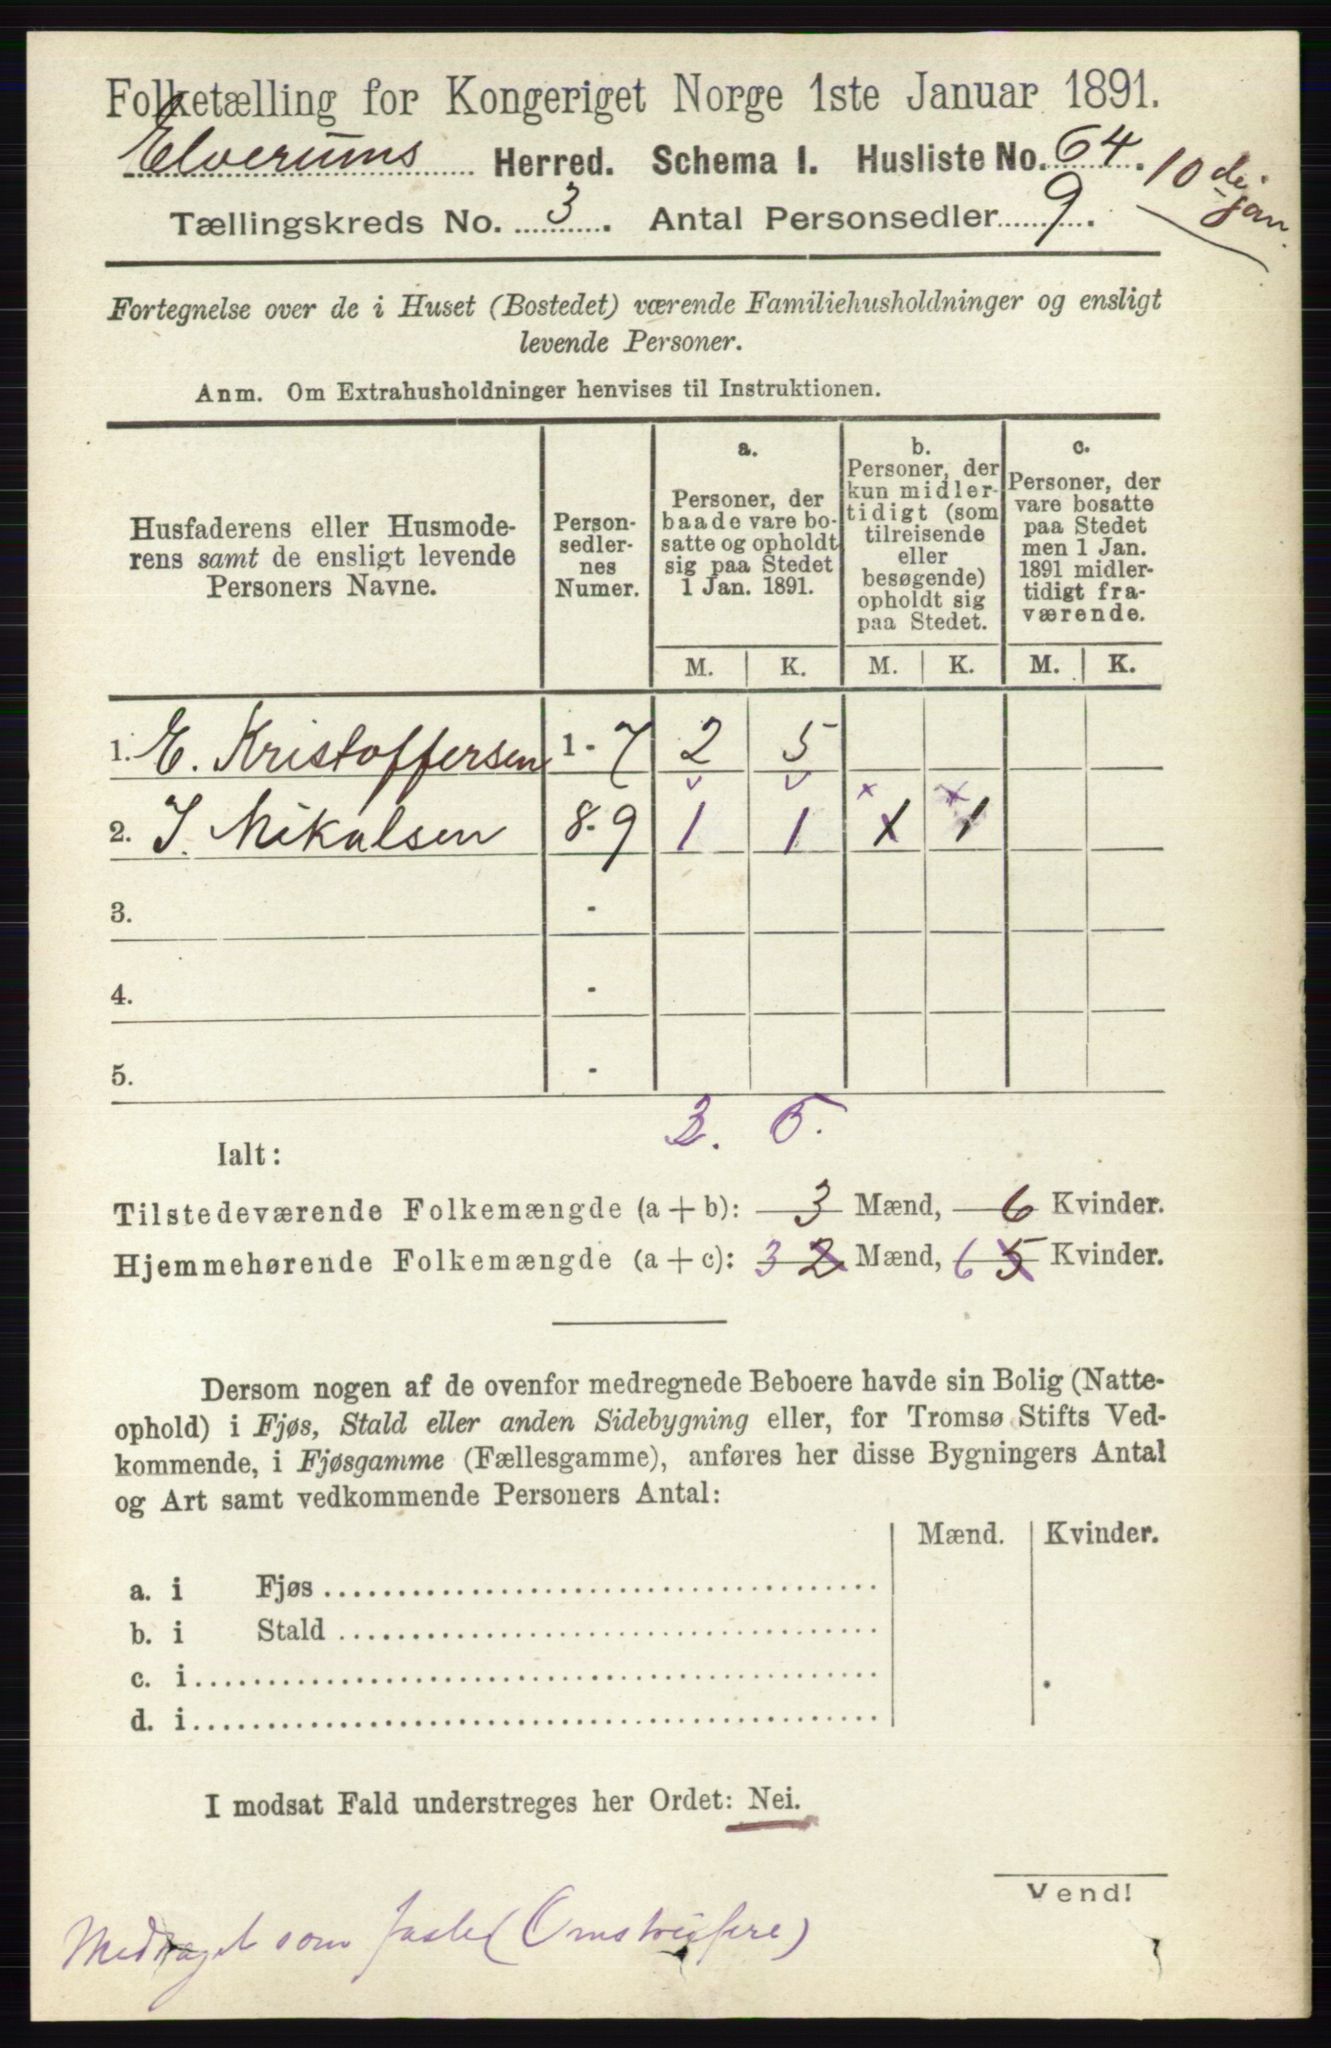 Folketælling for Kongeriget Norge 1ste Januar 1891.
Elverums Herred. Schema I. Husliste No. 64.
10 de jan.
Tællingskreds No. 3. Antal Personsedler 9.
Fortegnelse over de i Huset (Bostedet) værende Familiehusholdninger og ensligt
levende Personer.
Anm. Om Extrahusholdninger henvises til Instruktionen.
Husfaderens eller Husmode-
rens samt de ensligt levende
Personers Navne.
Person-
sedler-
nes
Numer.
a.
Personer, der
baade vare bo-
satte og opholdt
sig paa Stedet
1 Jan. 1891.
b.
Personer, der
kun midler-
tidigt (som
tilreisende
eller
besøgende)
opholdt sig
paa Stedet.
c.
Personer, der
vare bosatte
paa Stedet
men 1 Jan.
1891 midler-
tidigt fra-
værende.
M. K. M. K. M. K.
1. E. Kristoffersen 1 - 7 2 5
2. J. Mikalsen 8 - 9 1 1 x 1 x 1
3. -
4. -
5. -
3. 6.
Ialt:
Tilstedeværende Folkemængde (a + b): 3 Mænd, 6 Kvinder.
Hjemmehørende Folkemængde (a + c): 3 2 Mænd, 6 5 Kvinder.
Dersom nogen af de ovenfor medregnede Beboere havde sin Bolig (Natte-
ophold) i Fjøs, Stald eller anden Sidebygning eller, for Tromsø Stifts Ved-
kommende, i Fjøsgamme (Fællesgamme), anføres her disse Bygningers Antal
og Art samt vedkommende Personers Antal:
Mænd. Kvinder.
a. i Fjøs
b. i Stald
c. i
d. i
I modsat Fald understreges her Ordet: Nei.
Vend!
Medtaget som faste (Omstreifere)